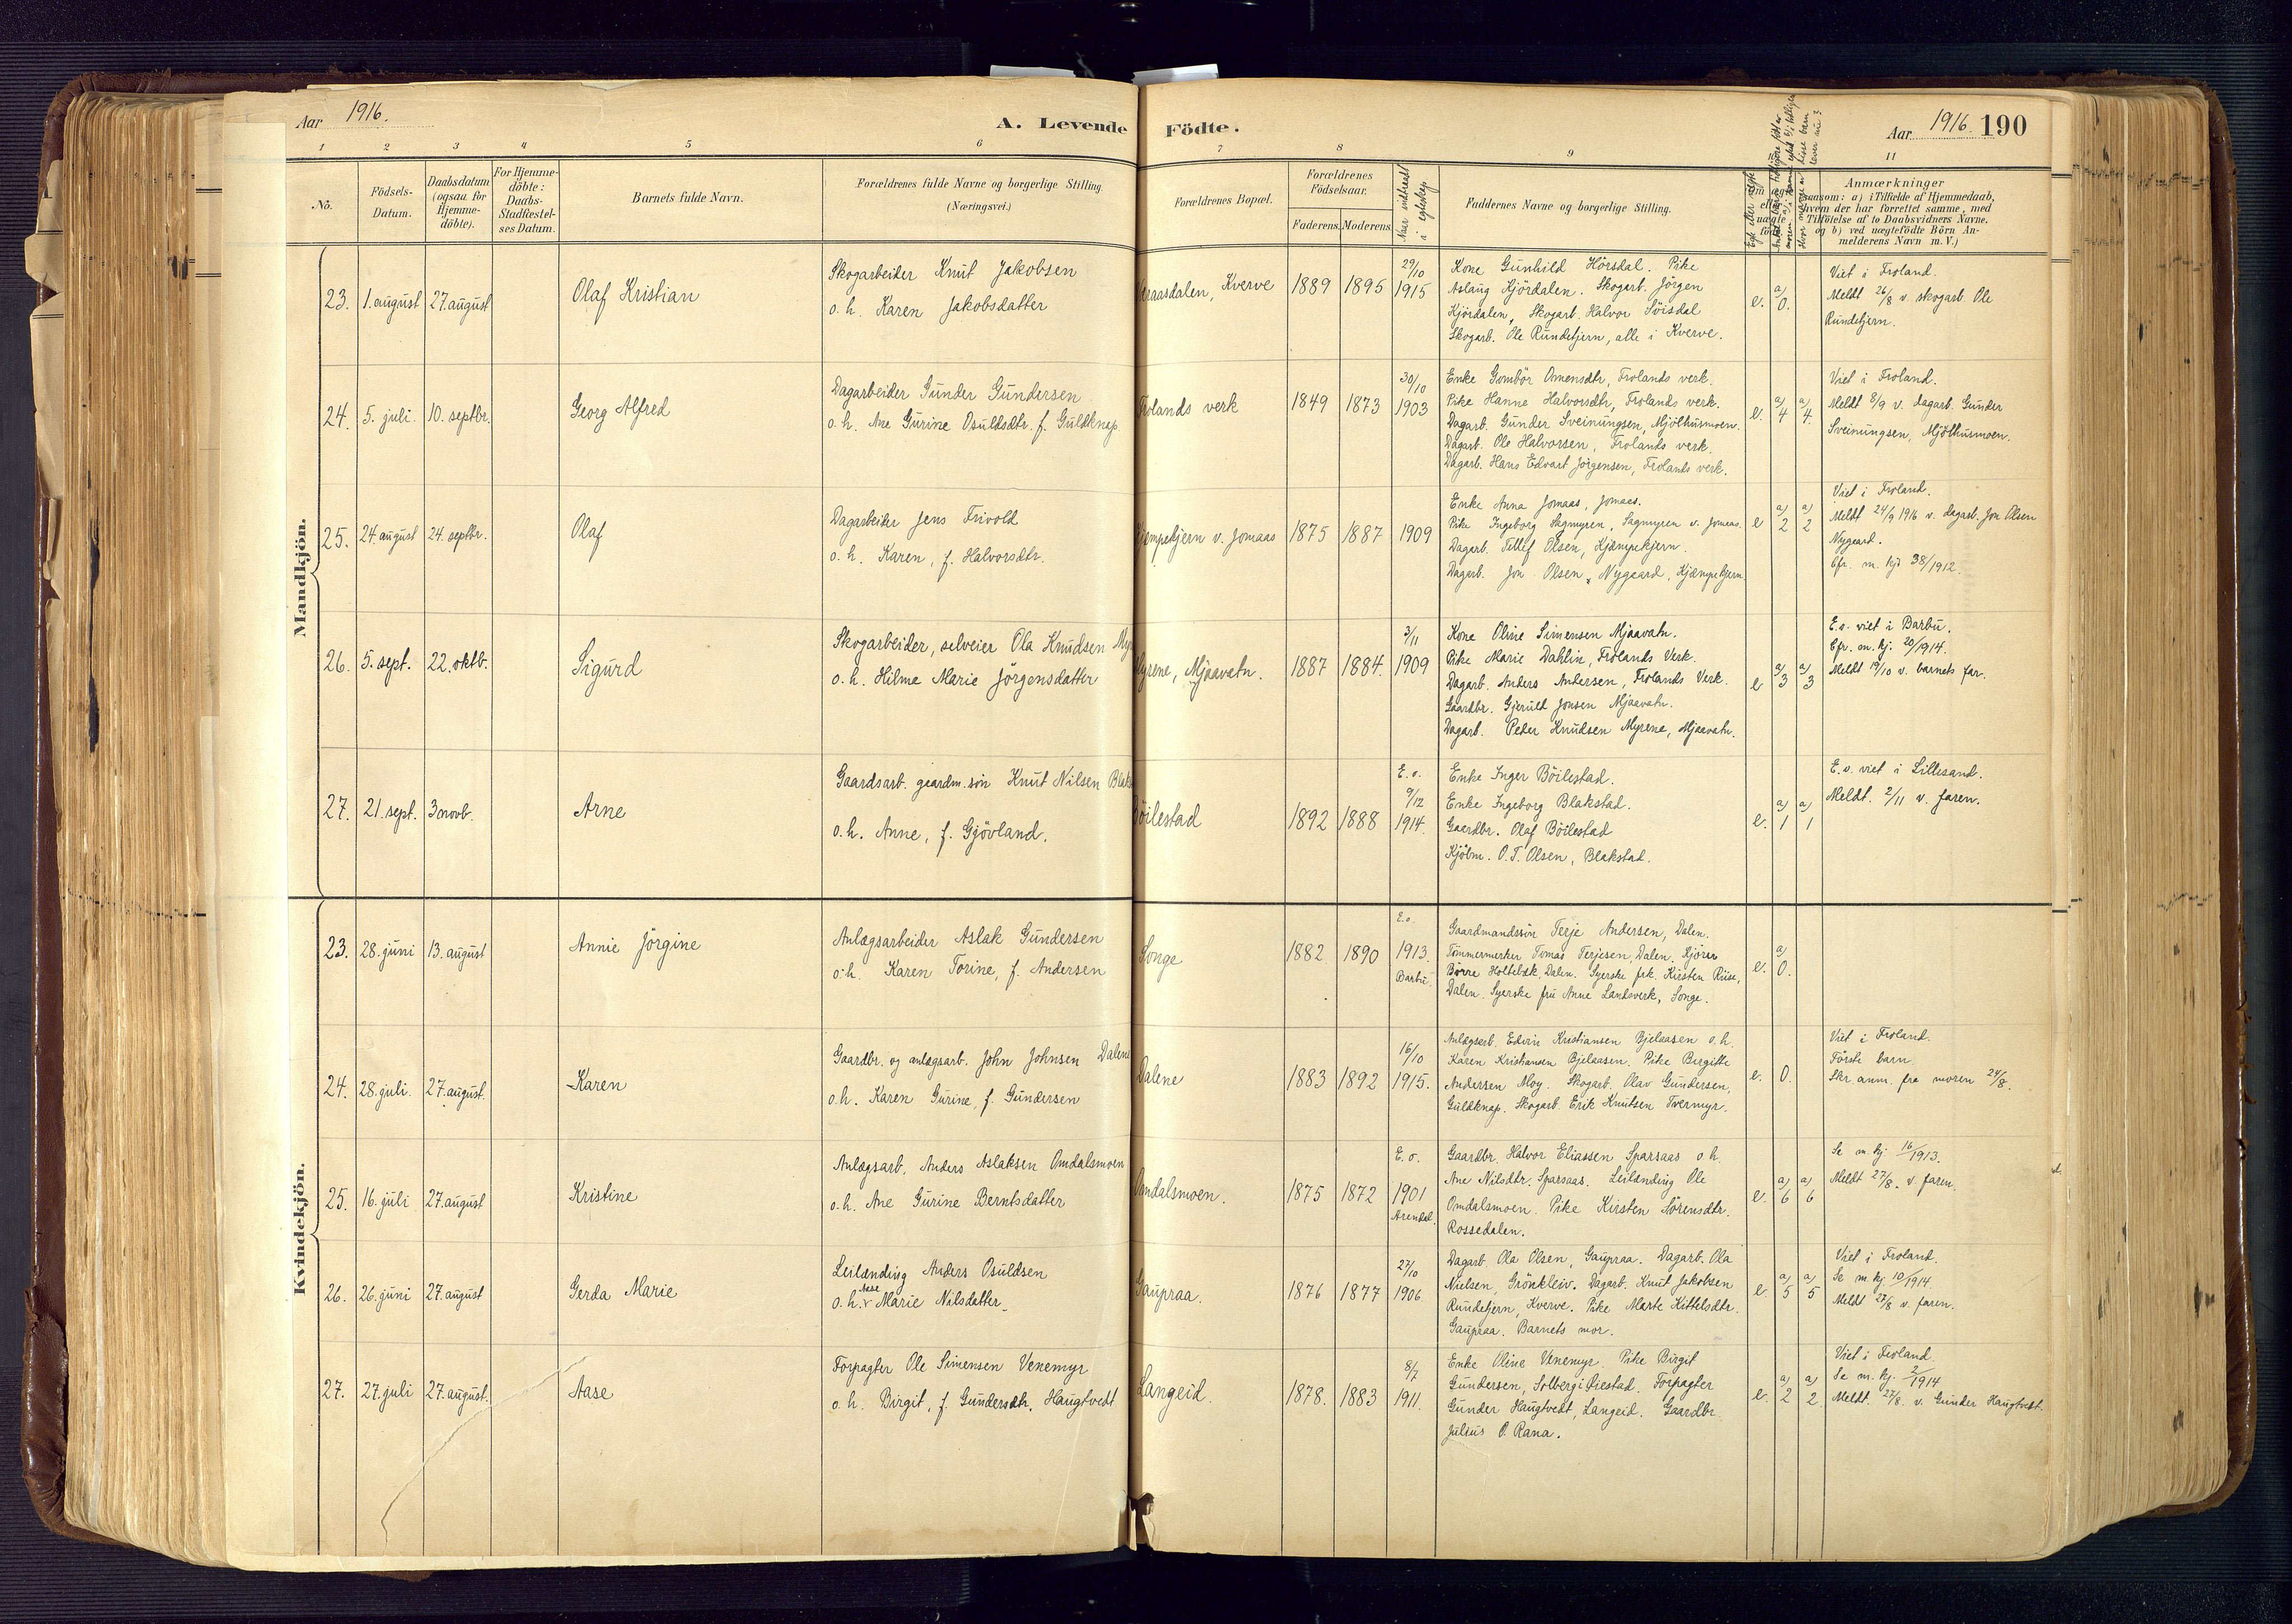 Aar 1916.
A. Levende Födte.
Aar 1916. 190
1 2 3 4 5 6 7 8 9 11
No.
Födsels-Datum.
Daabsdatum (ogsaa for Hjemme-döbte).
For Hjemme-döbte: Daabs-Stadfæstel-ses Datum.
Barnets fulde Navn.
Forældrenes fulde Navne og borgerlige Stilling. (Næringsvei.)
Forældrenes Bopæl.
Forældrenes Födselsaar.
Faderens. Moderens.
Naar indtraadt i egteskap
Faddernes Navne og borgerlige Stilling.
Anmærkninger
saasom: a) i Tilfælde af Hjemmedaab,
hvem der har forrettet samme, med
Tilföielse af to Daabsvidners Navne.
og b) ved uægtefödte Börn An-
melderens Navn m. V.)
Mandkjön.
23. 1. august 27. august
Olaf Kristian
Skogarbeider Knut Jakobsen
o. h. Karen Jakobsdatter
Kverve
1889 1895
29/10
1915
Kone Gunhild Hörsdal. Pike
Aslaug Kjördalen. Skogarb. Jörgen
Kjördalen, Skogarb. Halvor Söisdal
Skogarb. Ole Rundetjern, alle i Kverve.
e. a) 0.
Viet i Froland.
Meldt 26/8 v. skogarb. Ole
Rundetjern.
24. 5. juli. 10. septbr.
Georg Alfred
Dagarbeider Gunder Gundersen
o. h. Ane Gurine Osuldsdtr. f. Guldknap
Frolands verk
1849 1873
30/10
1903
Enke Gombör Omensdtr, Frolands verk.
Pike Hanne Halvorsdtr, Frolands verk.
Dagarb. Gunder Sveinungsen, Mjölhusmoen.
Dagarb. Ole Halvorsen, Frolands verk.
Dagarb. Hans Edvart Jörgensen, Frolands verk.
e. a) 4 a) 4.
Viet i Froland.
Meldt 8/9 v. dagarb. Gunder
Sveinungsen, Mjölhusmoen.
25. 24. august 24. septbr.
Olaf
Dagarbeider Jens Frivold
o. h. Karen, f. Halvorsdtr.
Kjempekjern v. Jomaas
1875 1887 1909
Enke Anna Jomaas, Jomaas.
Pike Ingeborg Sagmyren, Sagmyren v. Jomaas.
Dagarb. Tellef Olsen, Kjæmpekjern.
Dagarb. Jon Olsen Nygaard, Kjæmpekjern.
e a) 2 a) 2
Viet i Froland.
Meldt 24/9 1916 v. dagarb. Jon Olsen
Nygaard.
Cfr. m. kjö 38/1912.
26. 5. sept. 22. oktb.
Sigurd
Skogarbeider, selveier Ola Knudsen
o. h. Hilma Marie Jörgensdatter
Myrene, Mjaavatn.
1887 1884.
3/11
1909
Kone Oline Simensen Mjaavatn.
Pike Marie Dahlin, Frolands Verk.
Dagarb. Anders Andersen, Frolands Verk.
Gaardbr. Gjeruld Jonsen Mjaavatn.
Dagarb. Peder Knudsen Myrene, Mjaavatn.
e a) 3 a) 3
E. o. viet i Barbu.
Cfr. m. kj. 20/1914.
Meldt 19/10 v. barnets far.
27. 21. sept. 3 novb.
Arne
Gaardsarb. gaardm. sön Knut Nilsen
o. h. Anne, f. Gjövland.
Böilestad
1892 1888
E. o.
9/12
1914.
Enke Inger Böilestad.
Enke Ingeborg Blakstad.
Gaardbr. Olaf Böilestad
Kjöbm. O. T. Olsen, Blakstad.
e. a) 1 a) 1
E. o. viet i Lillesand.
Meldt. 2/11 v. faren.
Kvindekjön.
23. 28. juni 13. august
Annie Jörgine
Anlægsarbeider Aslak Gundersen
o. h. Karen Torine, f. Andersen
Songe
1882 1890
E. o.
1913.
Barbu.
Gaardmandssön Terje Andersen, Dalen.
Tömmermerker Tomas Terjesen, Dalen.
Börre Holtebæk, Dalen. Syerske frk. Kirsten Riise,
Dalen. Syerske fru Anne Landsverk, Songe.
e. a) 0.
24. 28. juli. 27. august.
Karen
Gaardbr. og anlægsarb. John Johnsen Dalene
o. h. Karen Gurine, f. Gundersen
Dalene
1883 1892
16/10
1915.
Anlægsarb. Edvin Kristiansen Bjelaasen o. h.
Karen Kristiansen Bjelaasen. Pike Birgitte
Andersen Moy. Skogarb. Olav Gundersen,
Guldknap. Skogarb. Erik Knutsen Tvermyr.
e. 0.
Viet i Froland.
Förste barn
Skr. anm. fra moren 24/8.
25. 16. juli 27. august
Kristine
Anlægsarb. Anders Aslaksen Omdalsmoen
o. h. Ane Gurine Berntsdatter
Omdalsmoen.
1875 1872
E. o.
1901
Arendal.
Gaardbr. Halvor Eliassen Sparsaas o. h.
Ane Nilsdtr. Sparsaas. Leilending Ole
Omdalsmoen. Pike Kirsten Sörensdtr.
Rossedalen.
e. a) 6 a) 6
Se m. kj. 16/1913.
Meldt 27/8. v. faren.
26. 26. juni 27. august
Gerda Marie
Leilænding Anders Osuldsen
o. h. Aase Marie Nilsdatter.
Gaupraa.
1876 1877
27/10
1906.
Dagarb. Ola Olsen, Gaupraa. Dagarb. Ola
Nielsen, Grönkleiv. Dagarb. Knut Jakobsen
Rundetjern, Kverve. Pike Marte Kittelsdtr.
Gaupraa. Barnets mor.
e. a) 5 a) 5
Viet i Froland.
Se m. kj. 10/1914.
Meldt 27/8 v. faren.
27. 27. juli 27. august.
Aase
Forpagter Ole Simensen Venemyr
o. h. Birgit, f. Gundersdtr. Haugtvedt
Langeid.
1878. 1883
8/7
1911.
Enke Oline Venemyr. Pike Birgit
Gundersen, Forpagter
Gunder Haugtvedt, Langeid. Gaardbr.
Julius O. Rana.
e. a) 2 a) 2.
Viet i Froland.
Se m. kj. 2/1914
Meldt. 27/8. v. Gunder Haugtvedt.